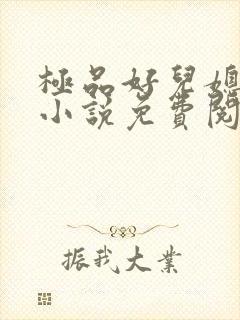 極品好兒媳
小說免費閱
振我大業